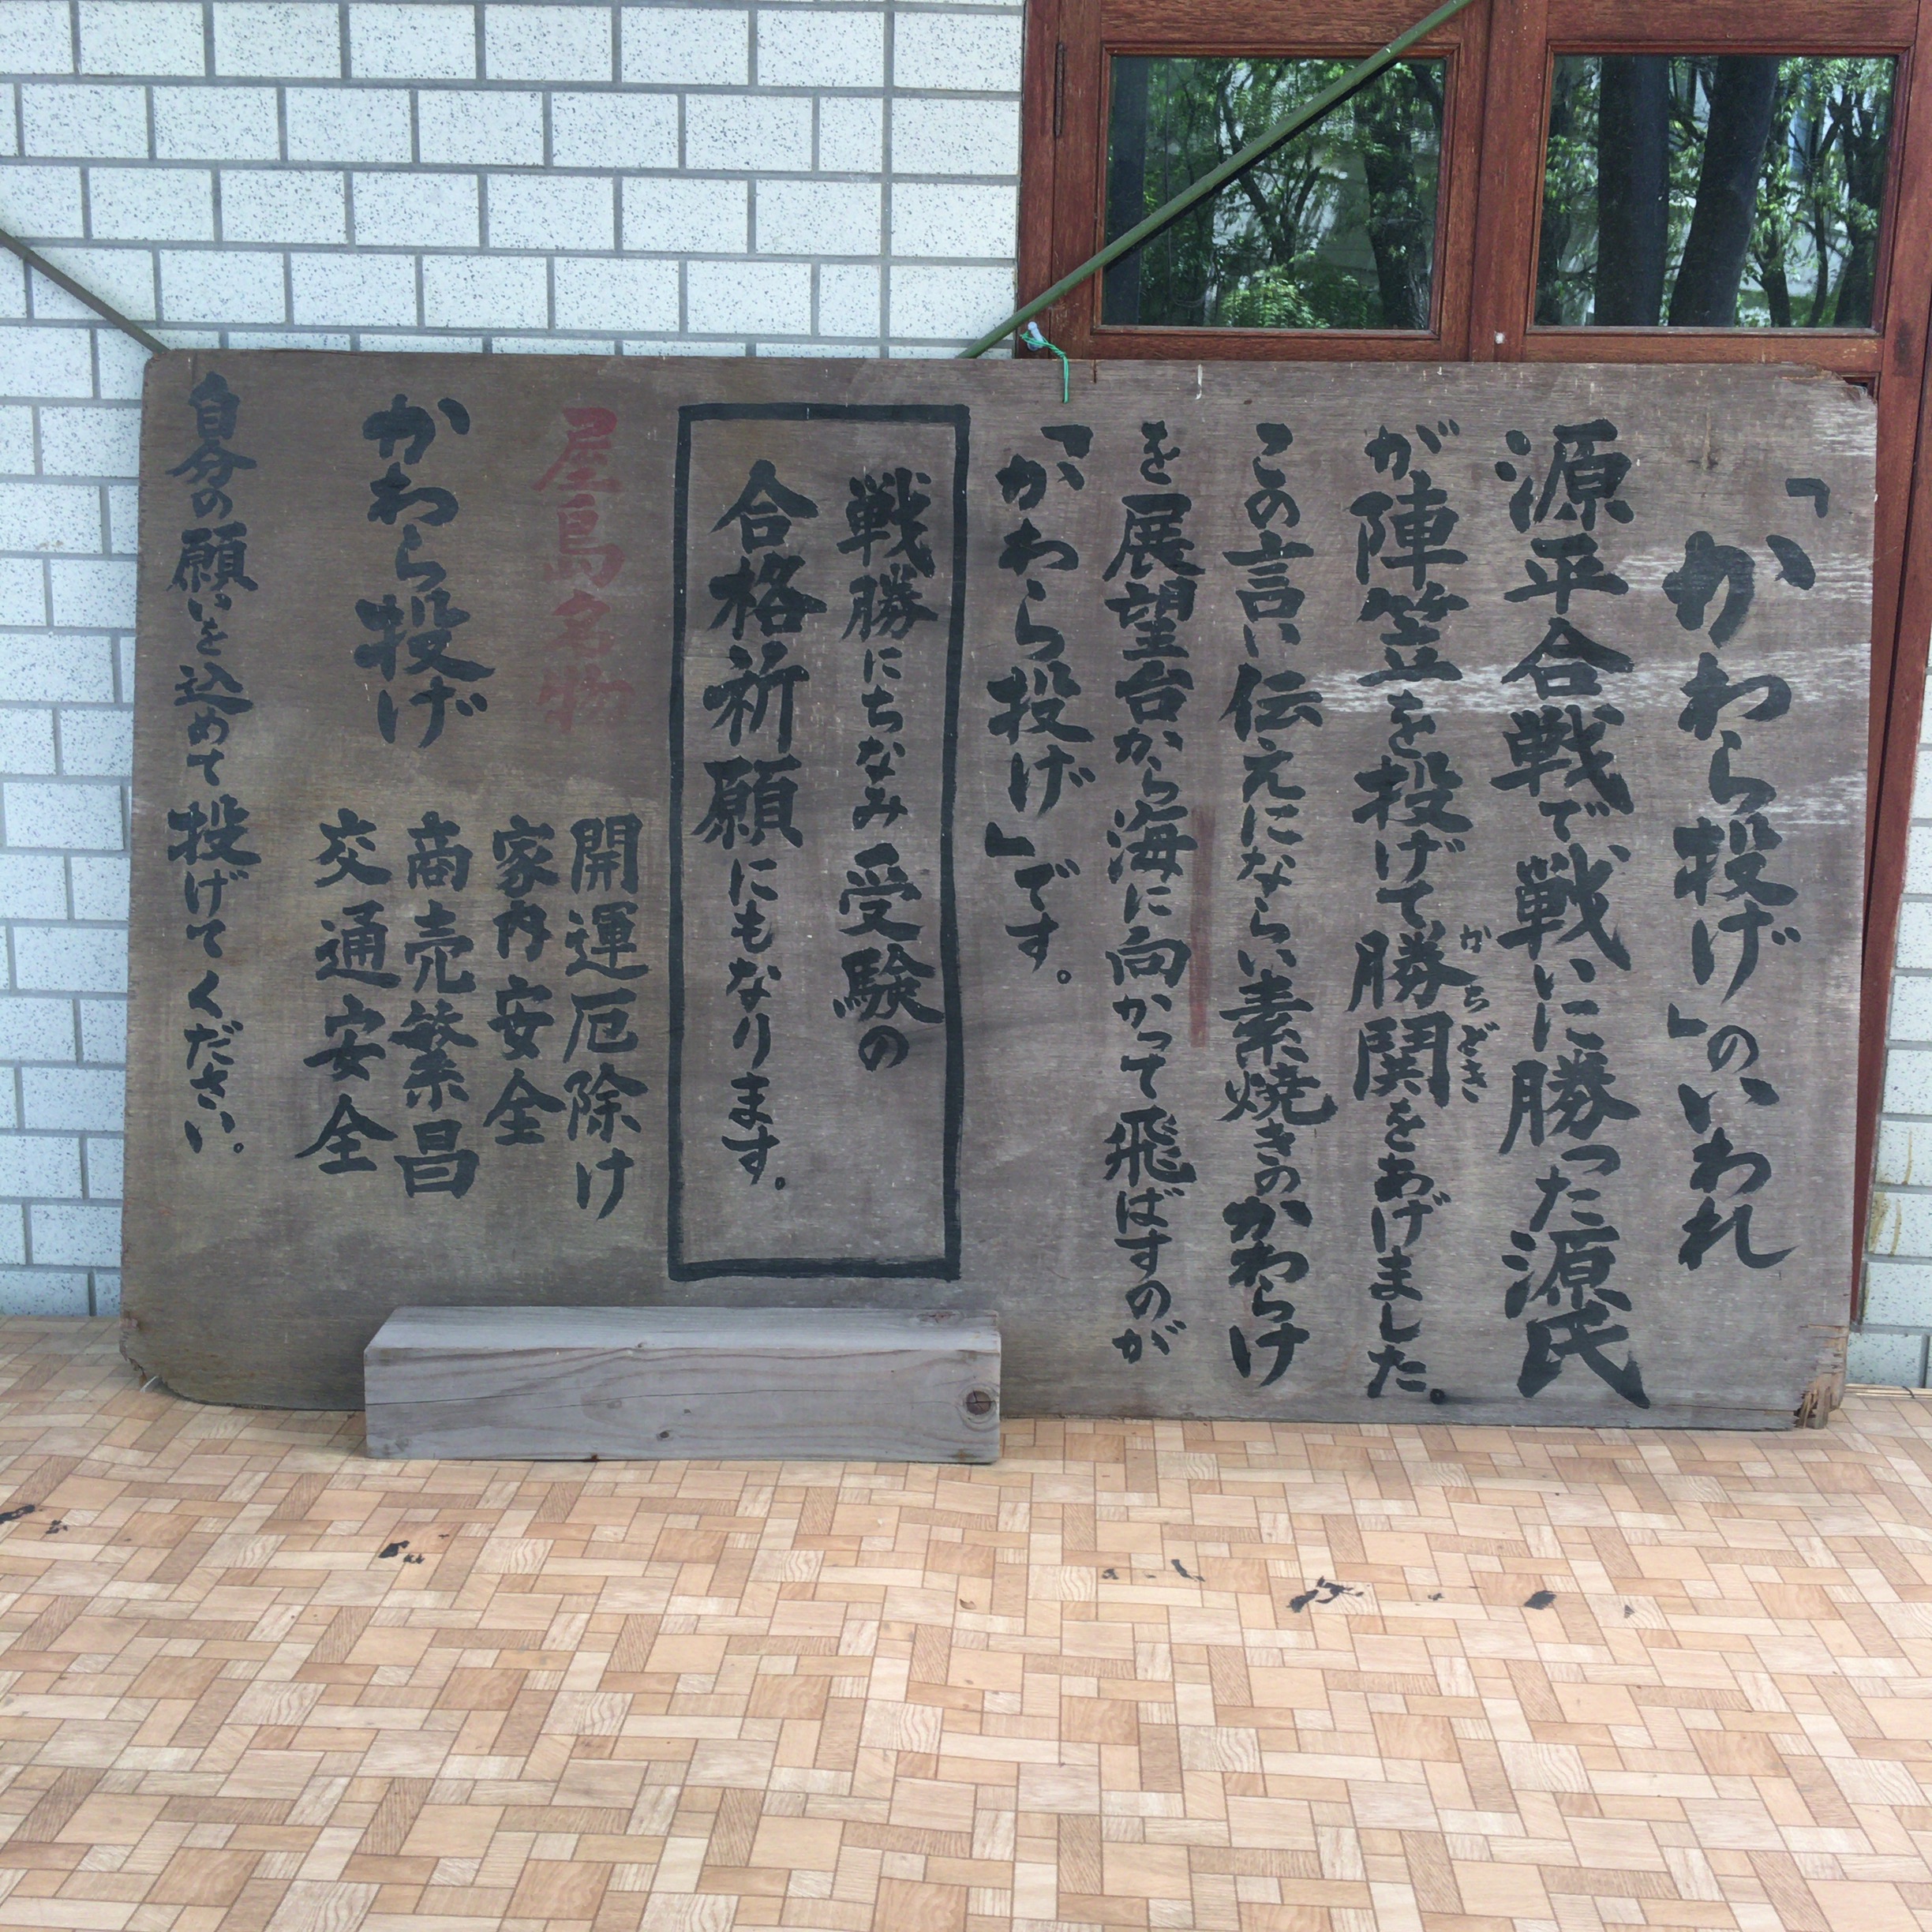 「かわら投げ」のいわれ
源平合戦で戦いに勝った源氏
が、陣笠を投げて、勝鬨をあげました。
かちどき
この言い伝えにならい素焼きのかわらけ
を展望台から海に向かって飛ばすのが
「かわら投げ」です。
戦勝にちなみ受験の
合格祈願にもなります。
屋島名物
かわら投げ
開運厄除け
家内安全
商売繁昌
交通安全
自分の願いを込めて投げてください。